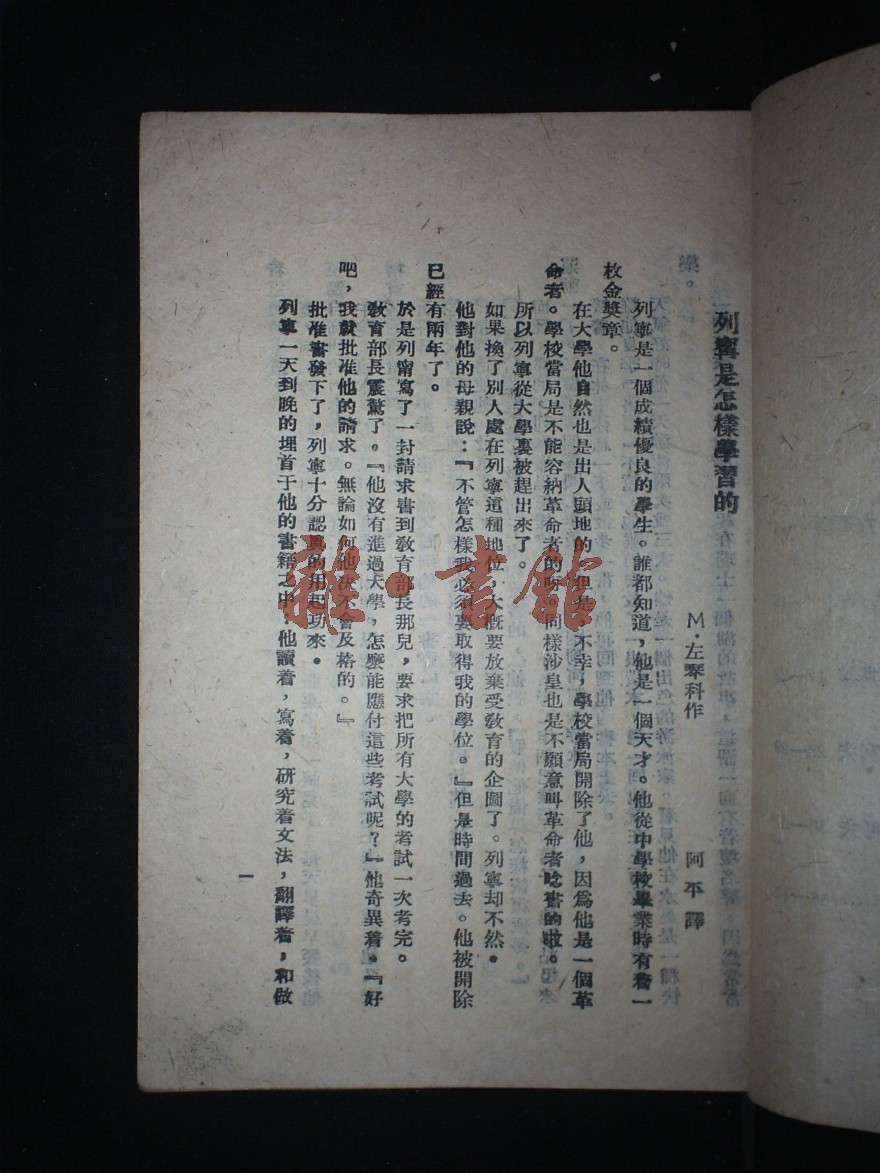 列寧是怎樣學習的
M·左琴科作
阿平譯
列寧是一個成績優良的學生。誰都知道，他是一個天才。他從中學校畢業時有着一
枚金獎章。
在大學他自然也是出人頭地的。但是，不幸，學校當局開除了他，因爲他是一個革
命者。學校當局是不能容納革命者的呀，同樣沙皇也是不願意叫革命者唸書的啦。
所以列寧從大學裏被趕出來了。
如果換了別人處在列寧這種地位，大概要放棄受敎育的企圖了。列寧却不然。
他對他的母親說：『不管怎樣我必須要取得我的學位。』但是時間過去。他被開除
已經有兩年了。
於是列甯寫了一封請求書到敎育部長那兒，要求把所有大學的考試一次考完。
敎育部長震驚了。『他沒有進過大學，怎麼能應付這些考試呢？』他奇異着。『好
吧，我就批准他的請求。無論如何他決不會及格的。』
批准書發下了，列寧十分認眞的用起功來。
列寧一天到晚的埋首于他的書籍之中，他讀着，寫着，研究着文法，翻譯着，和做
一
雜·書館